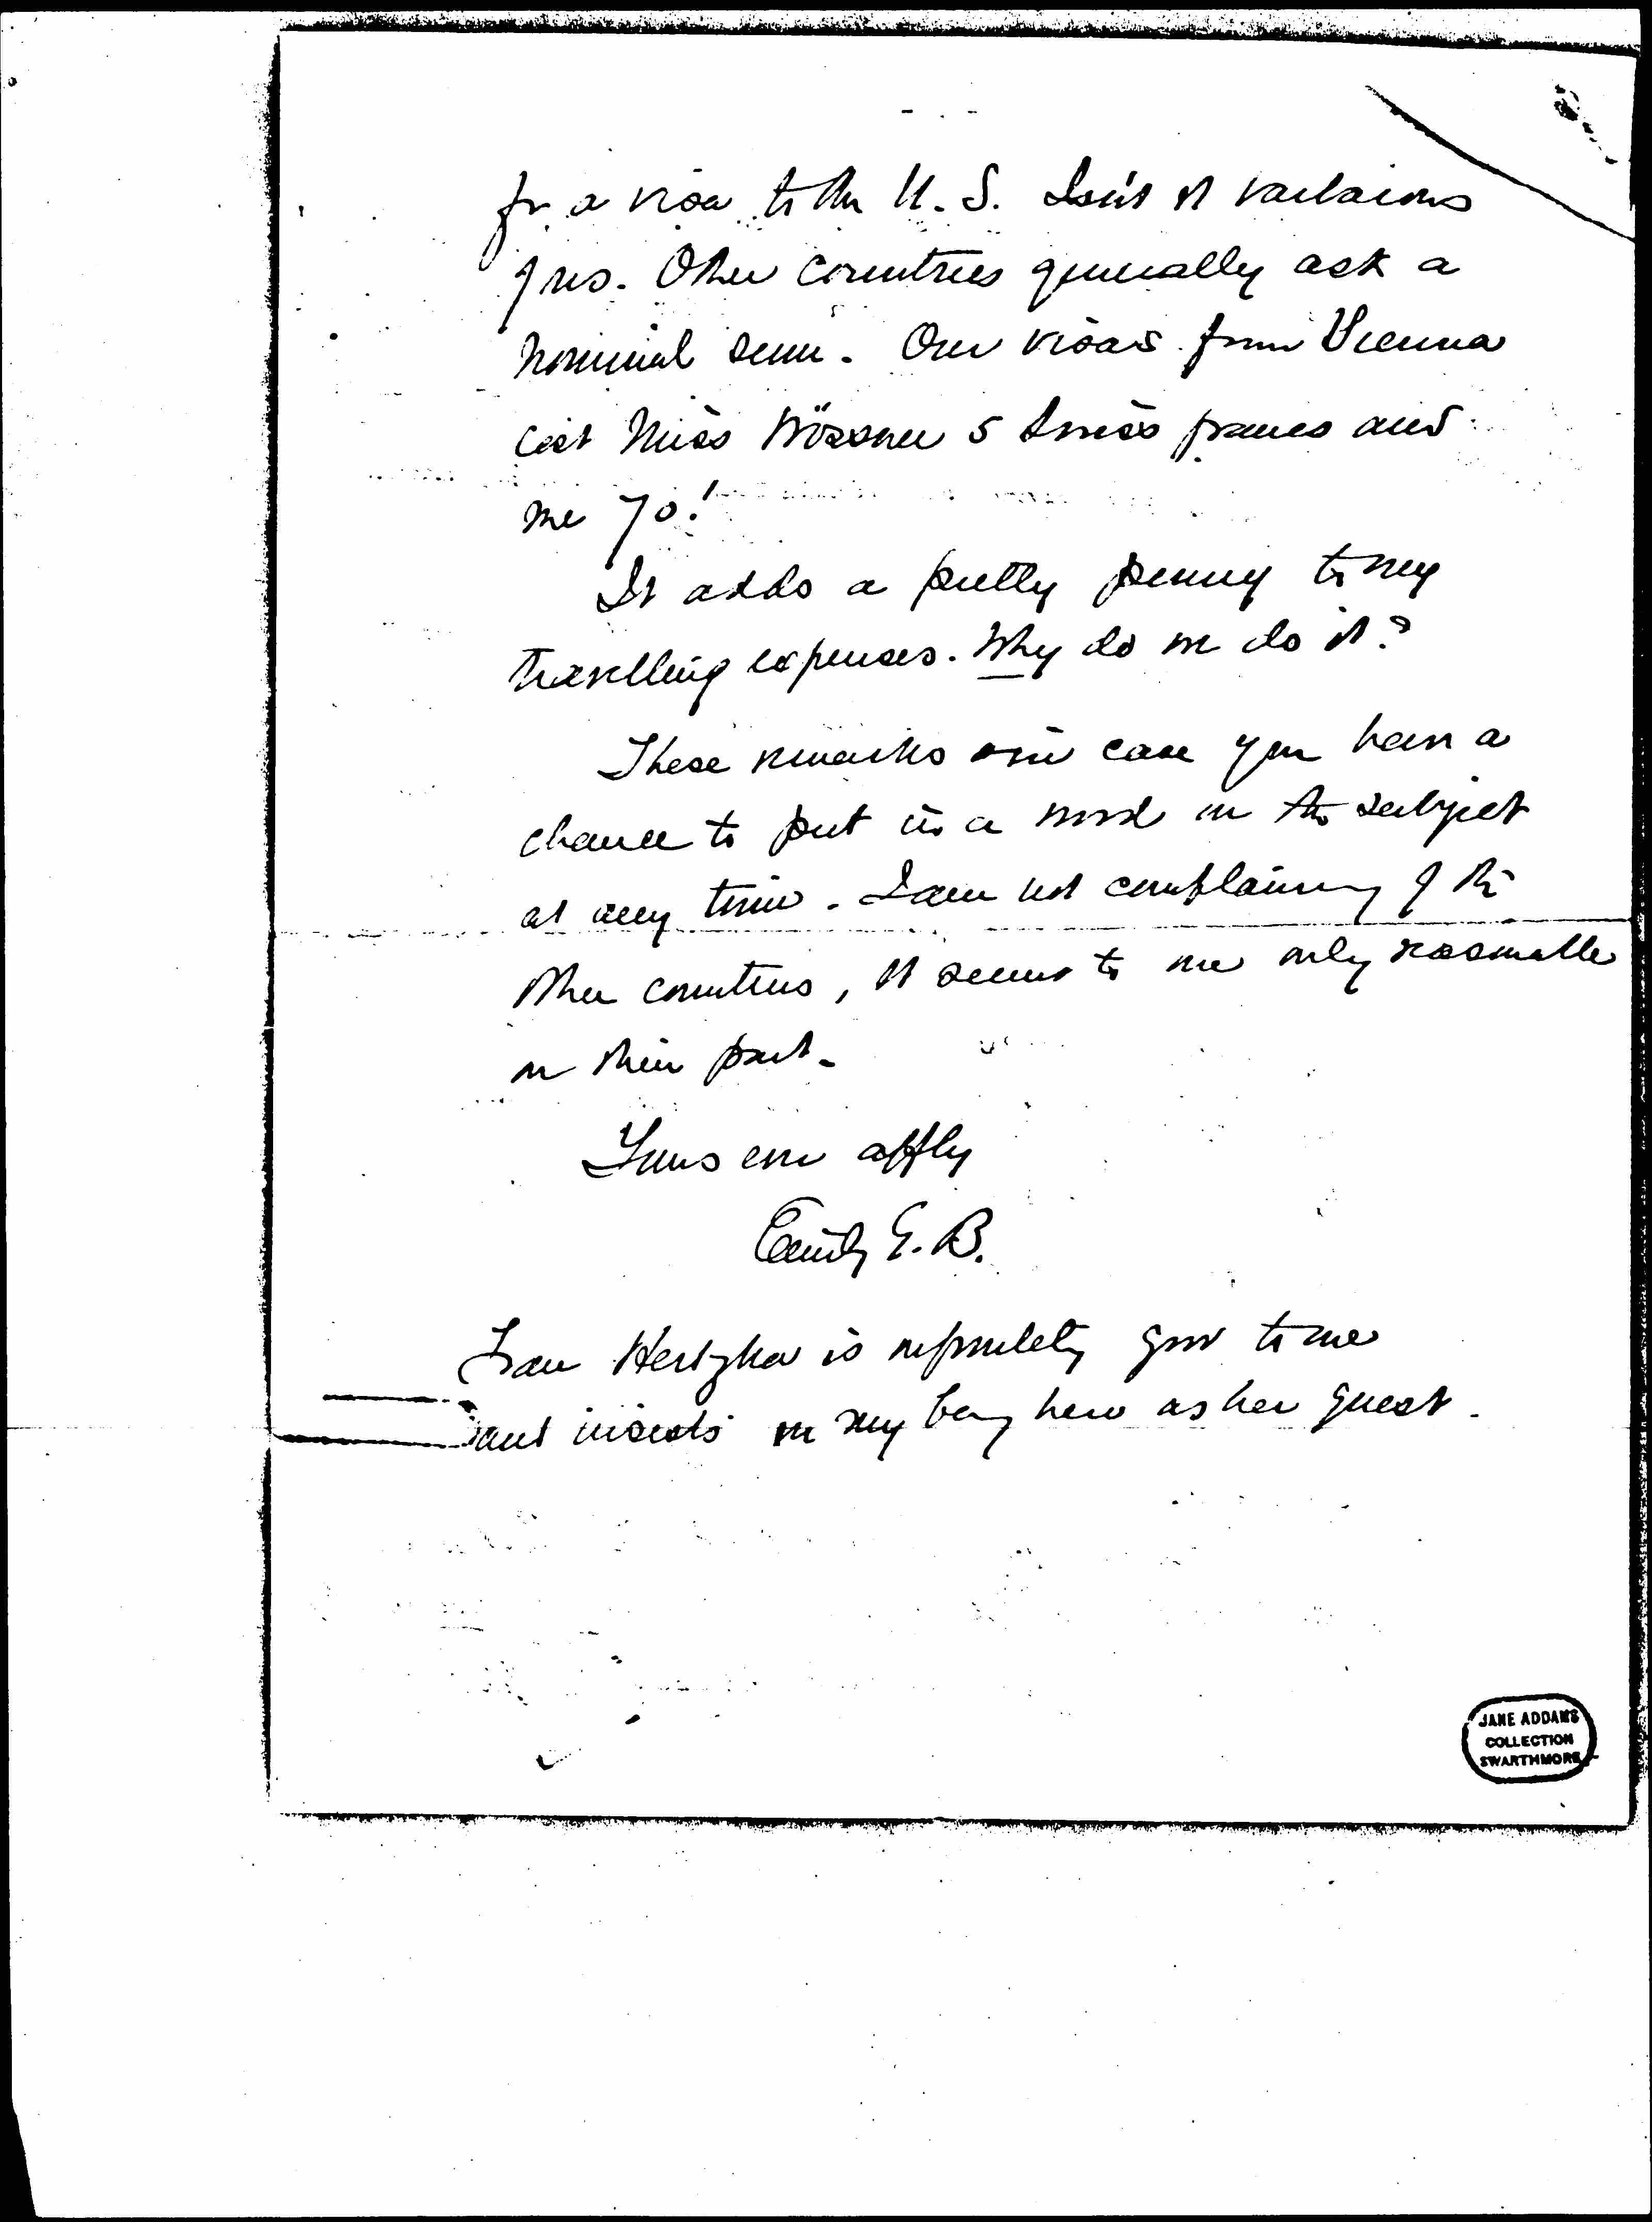 for a visa to the U.S. Isn't it barbarous
of us. Other countries generally ask a
nominal sum. Our visas from Vienna
cost Miss Wössner 5 Swiss francs and
me 70!
It adds a pretty penny to my
travelling expenses. Why do we do it?
These remarks in case you have a
chance to put in a word on the subject
at any time. I am not complaining of the
other countries, it seems to me only reasonable
on their part.
Yours ever affly
Emily G. B.
Frau Hertzka is goodness to me
and insists on my being here as her guest.
JANE ADDAMS
COLLECTION
SWARTHMORE